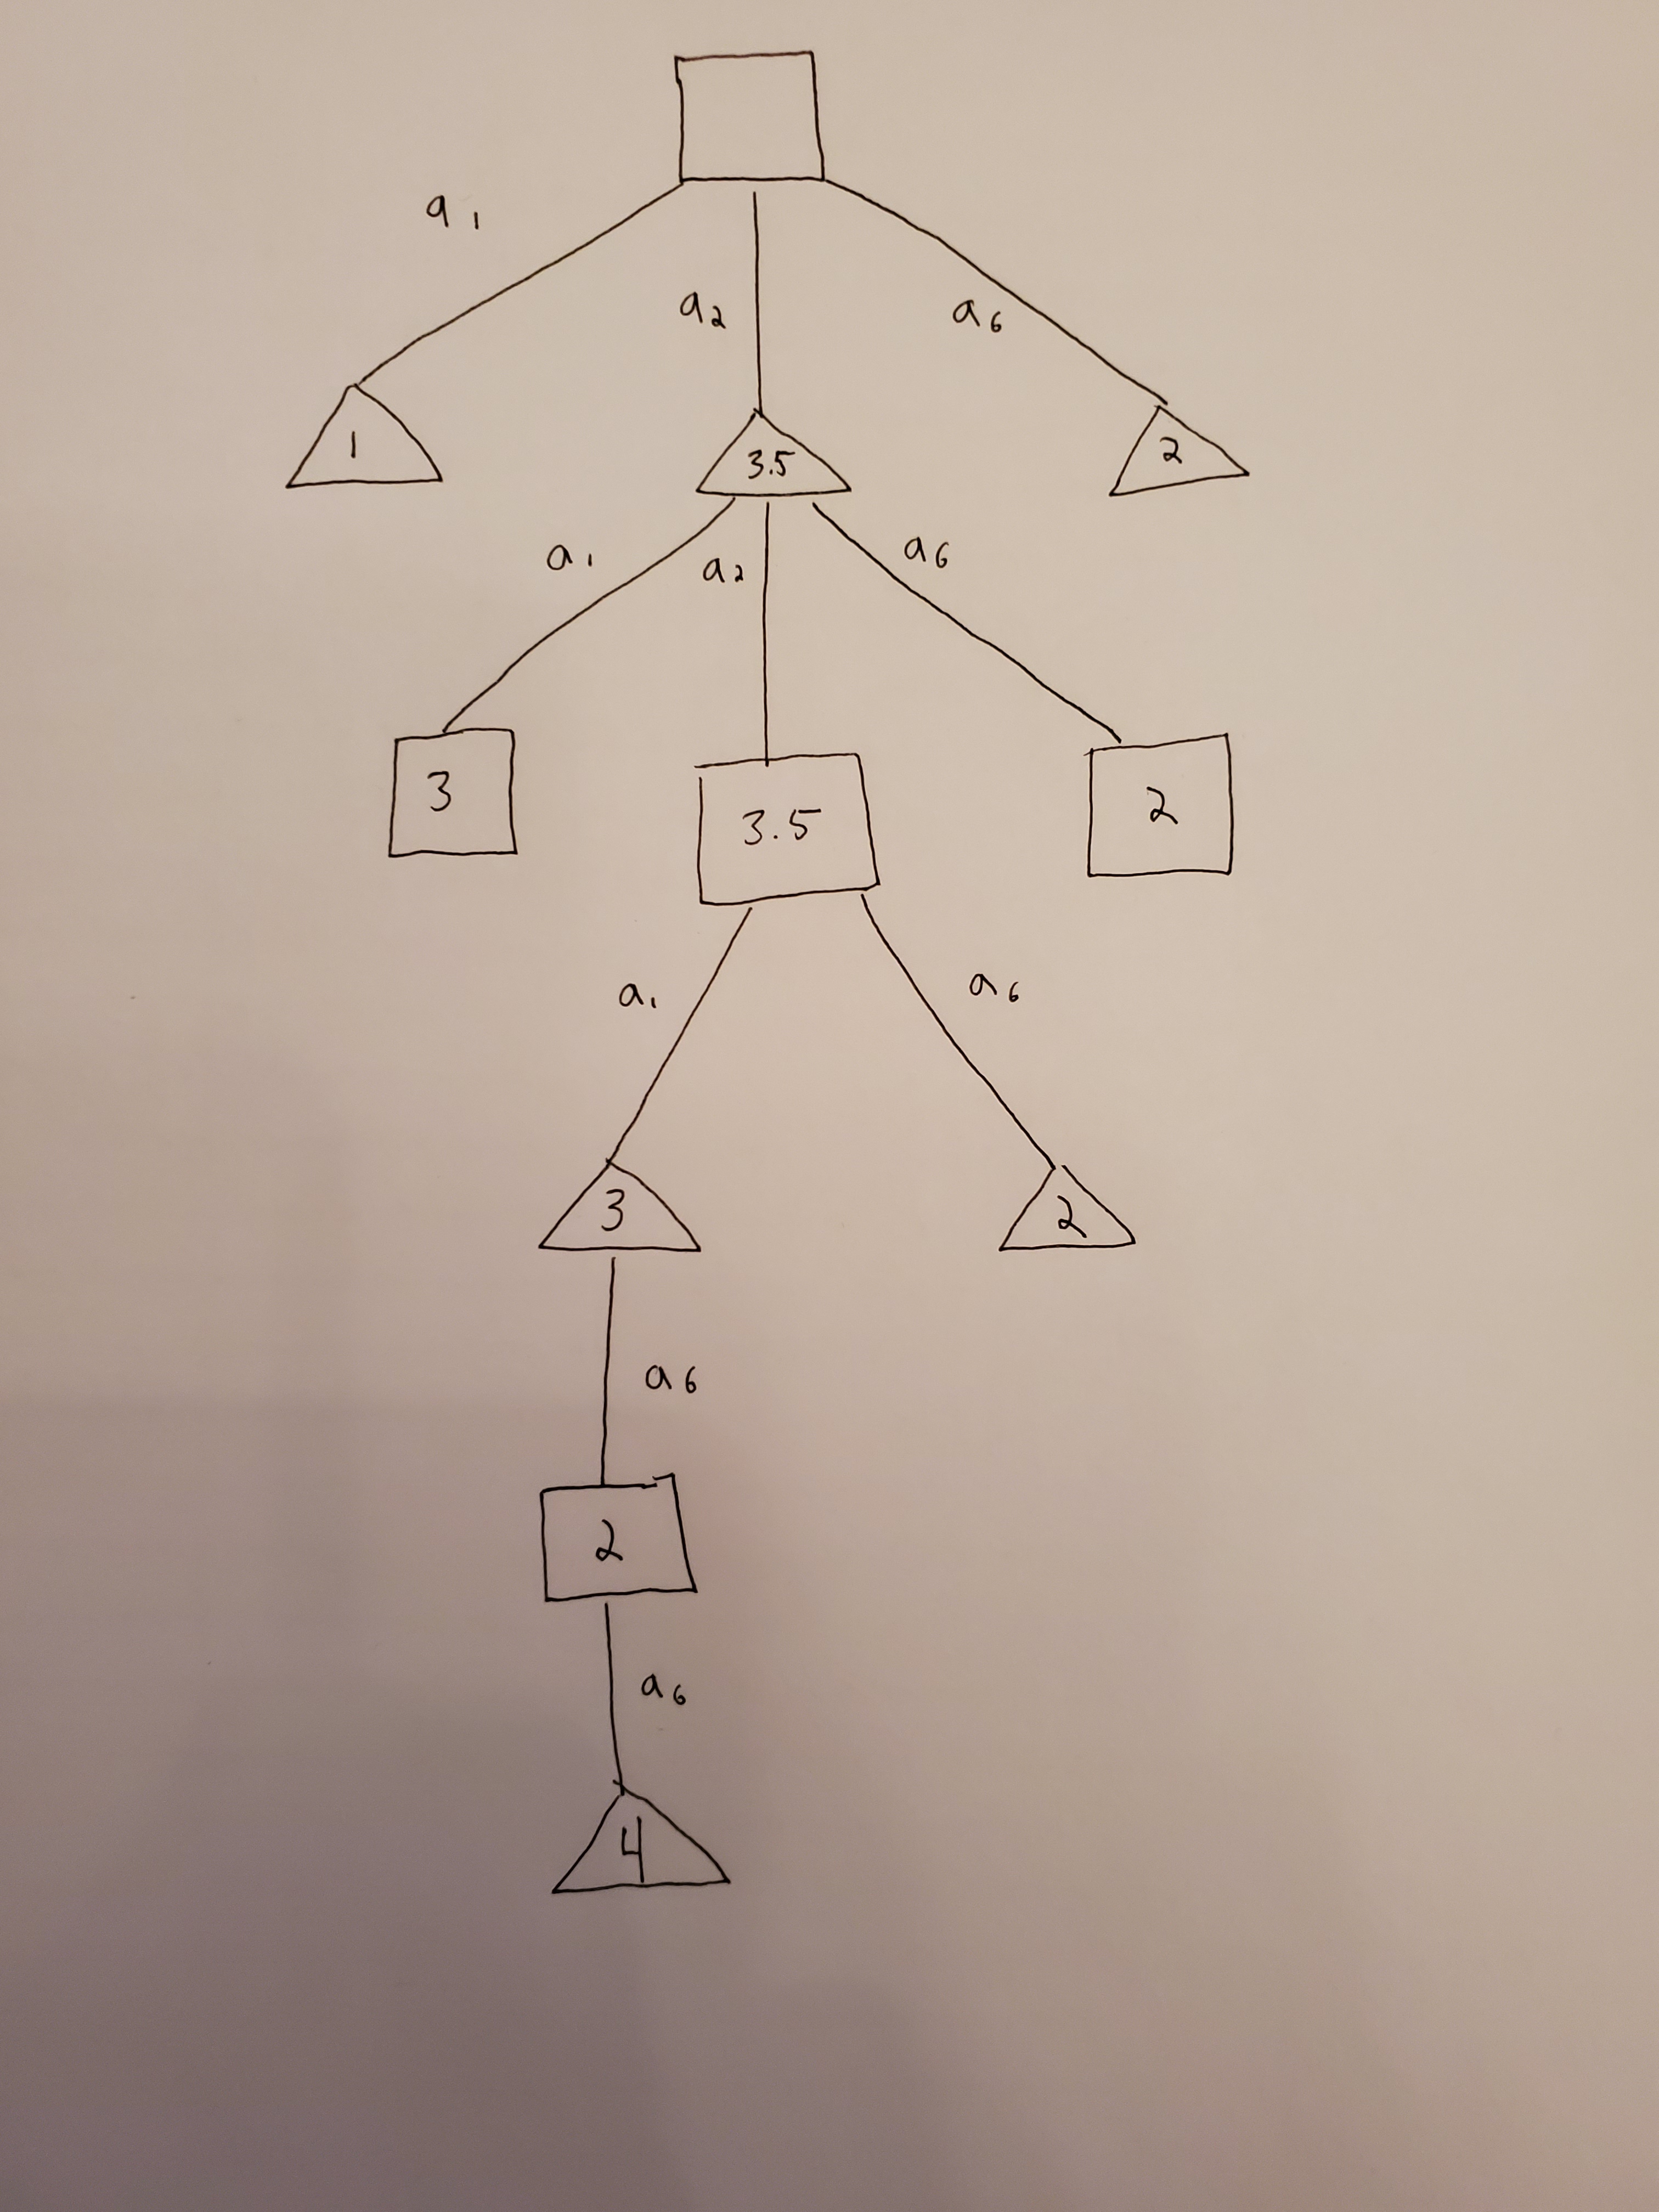 a1
a2
a6
1
3.5
2
a1
a2
a6
3
3.5
2
a1
a6
3
2
a6
2
a6
4